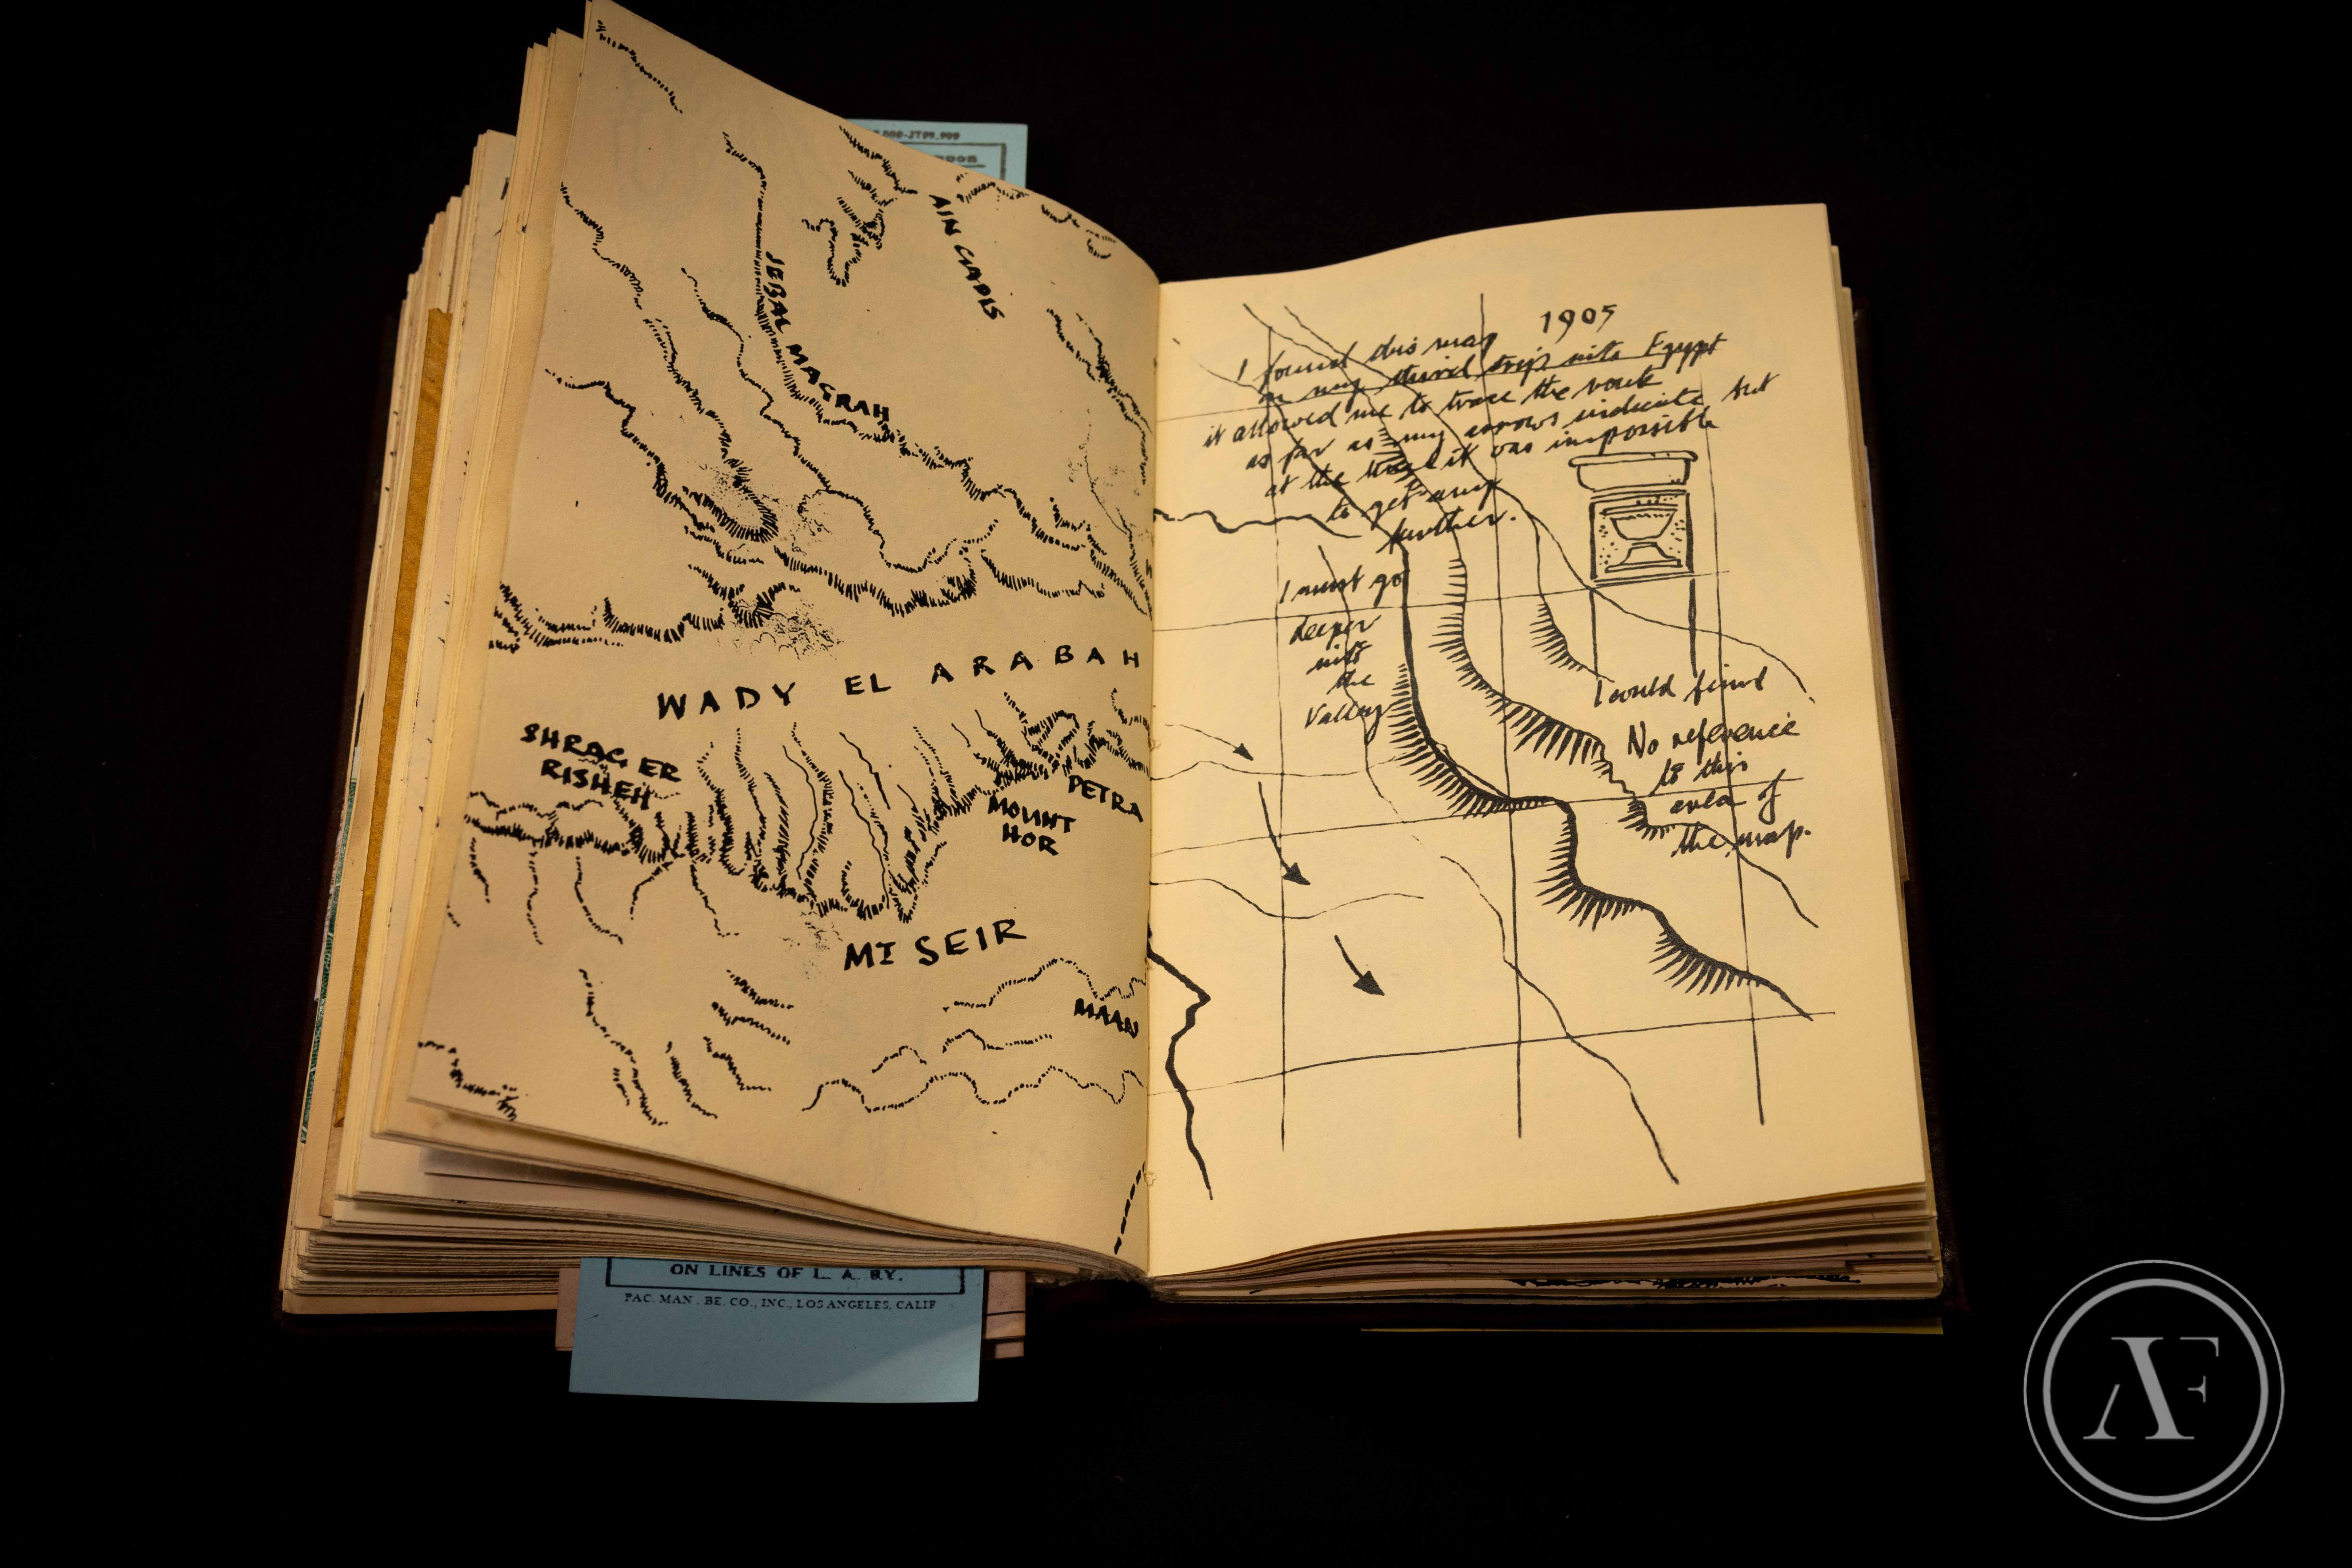 AIN GADIS
JEBAL MAGRAH
WADY EL ARABAH
SHRAG, ER
RISHEH
MOUNT
HOR
PETRA
MT SEIR
MAAN
ON LINES OF L. A. RY.
PAC. MAN. BE. CO., INC., LOS ANGELES, CALIF
1905
I found this map
on my third trip into Egypt
it allowed me to trace the route
as far as my arrows indicate but
at the time it was impossible
to get any
further.
I must go
deeper
into
the
Valley
I could find
No reference
to this
area of
the map.
AF